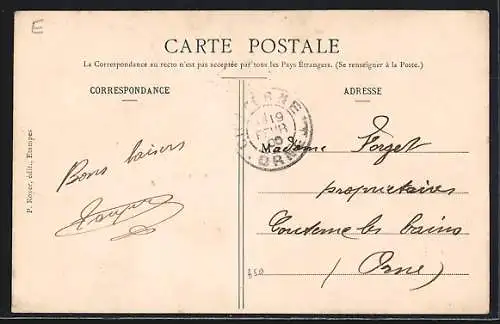 E
CARTE POSTALE
La Correspondance au recto n'est pas acceptée par tous les Pays Étrangers. (Se renseigner à la Poste.)
CORRESPONDANCE
ADRESSE
19
ORNE
Madame Forget
propriétaire
Couterne les bains
(Orne)
Bons baisers
P. Royer, édit., Etampes
350